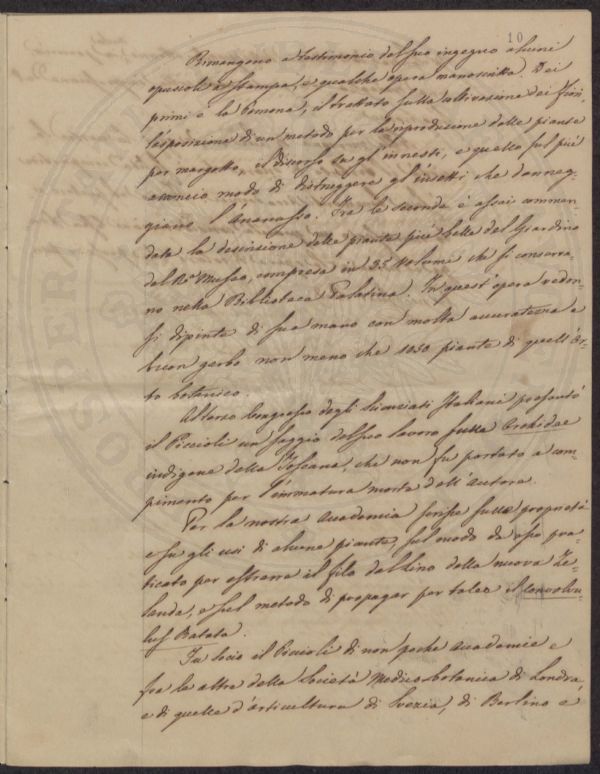 10
Rimangono a testimonio del suo ingegno alcuni
opuscoli a stampa, e qualche opera manoscritta. Dei
primi è la Pomona, il trattato sulla coltivazione dei fiori,
l'esposizione di un metodo per la riproduzione delle piante
per margotto, il discorso su gl'innesti, e quello sul più
acconcio modo di distruggere gl'insetti che danneg-
giano l'Ananasso. Tra le seconde è assai commen-
data la descrizione delle piante più belle del Giardino
del R.º Museo, compresa in 35 Volumi che si conserva
no nella Biblioteca Palatina. In quest'opera vedon-
si dipinte di sua mano con molta accuratezza e
buon garbo non meno che 1050 piante di quell'Or-
to botanico.
Al terzo Congresso degli scienziati Italiani presentò
il Piccioli un saggio del suo lavoro sulle Orchidee
indigene della Toscana, che non fu portato a com-
pimento per l'immatura morte dell'autore.
Per la nostra Accademia scrisse sulle proprietà
e su gli usi di alcune piante, sul modo da esso pra-
ticato per estrarre il filo del Lino della nuova Ze-
landa, e sul metodo di propagar per talee il Convolvu-
lus Batata.
Fu socio il Piccioli di non poche Accademie e
fra le altre della Società Medico botanica di Londra
e di quelle d'orticultura di Svezia, di Berlino e